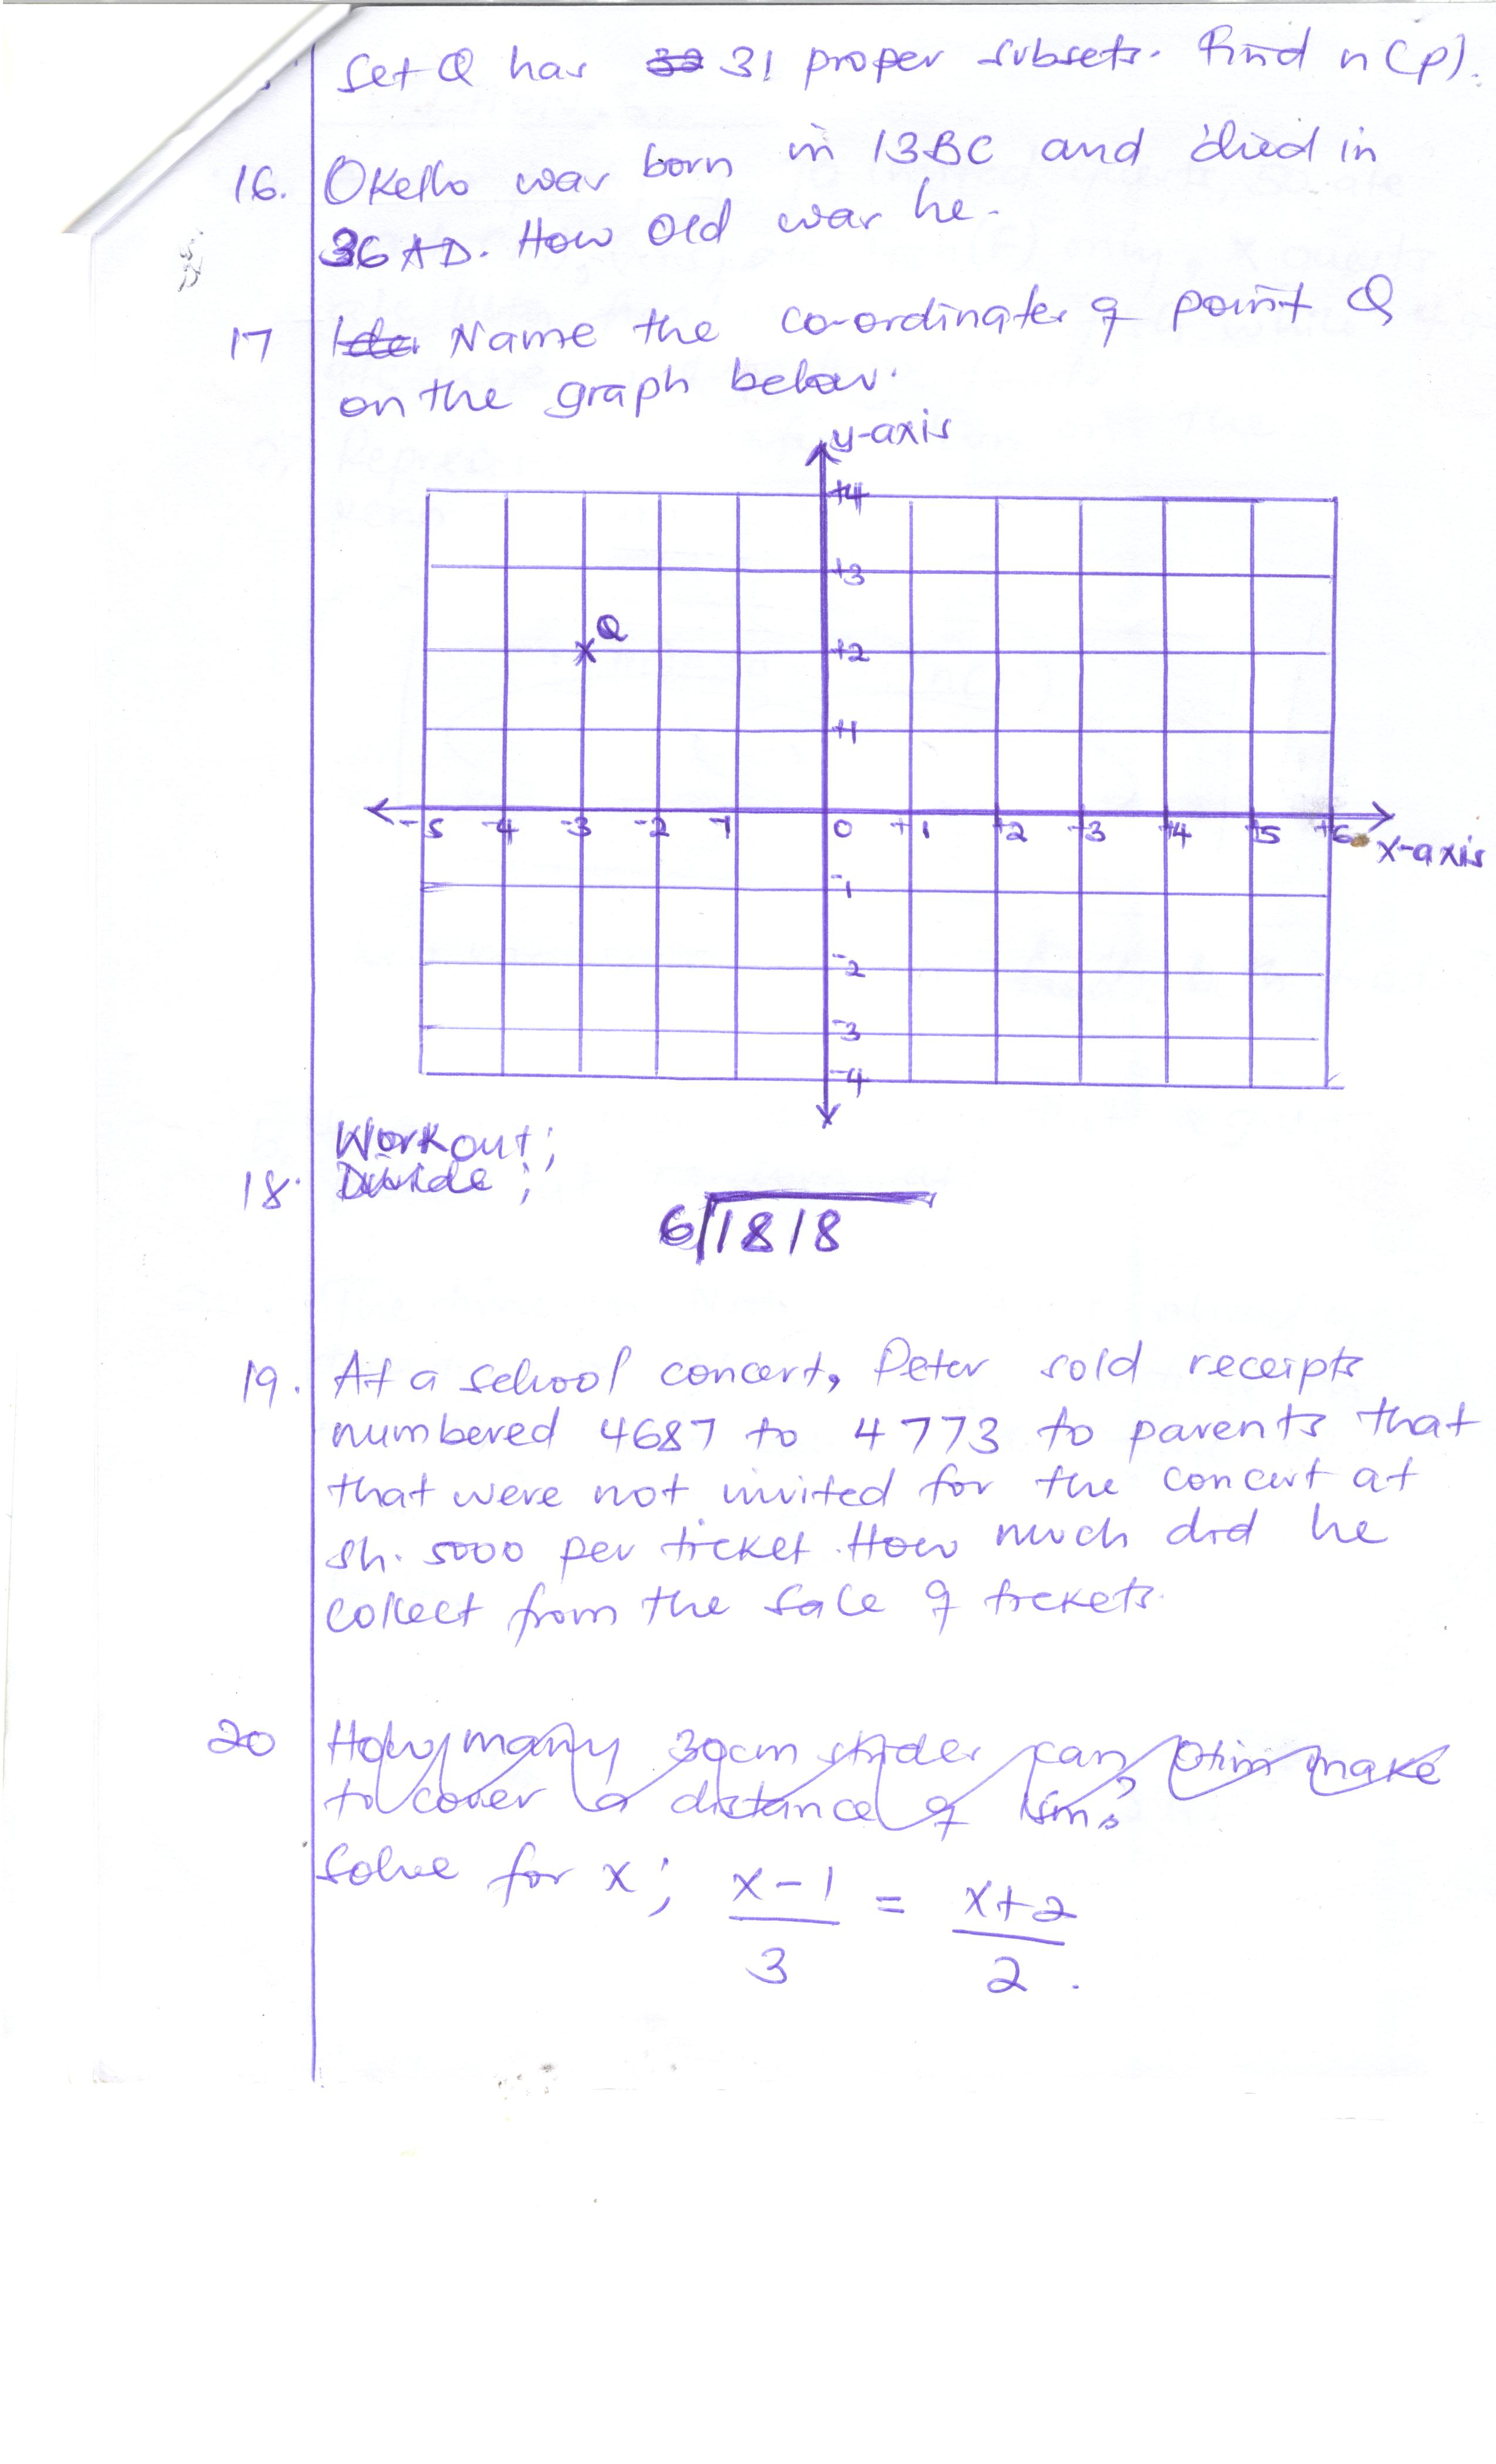 Set Q has 32 31 proper subsets. Find n(p).
16. Okello was born in 13BC and died in
36 AD. How old was he.
17 Name the co-ordinates of point Q
on the graph below.
y-axis
+4
+3
Q
+2
+1
-5 -4 -3 -2 -1 0 +1 +2 +3 +4 +5 +6 x-axis
-1
-2
-3
-4
Workout;
18. Divide;
6 1818
19. At a school concert, Peter sold receipts
numbered 4687 to 4773 to parents that
that were not invited for the concert at
sh. 5000 per ticket. How much did he
collect from the sale of tickets.
20 How many 30cm strides can Otim make
to cover a distance of 15m?
Solve for x; x-1 = x+2
3 2.